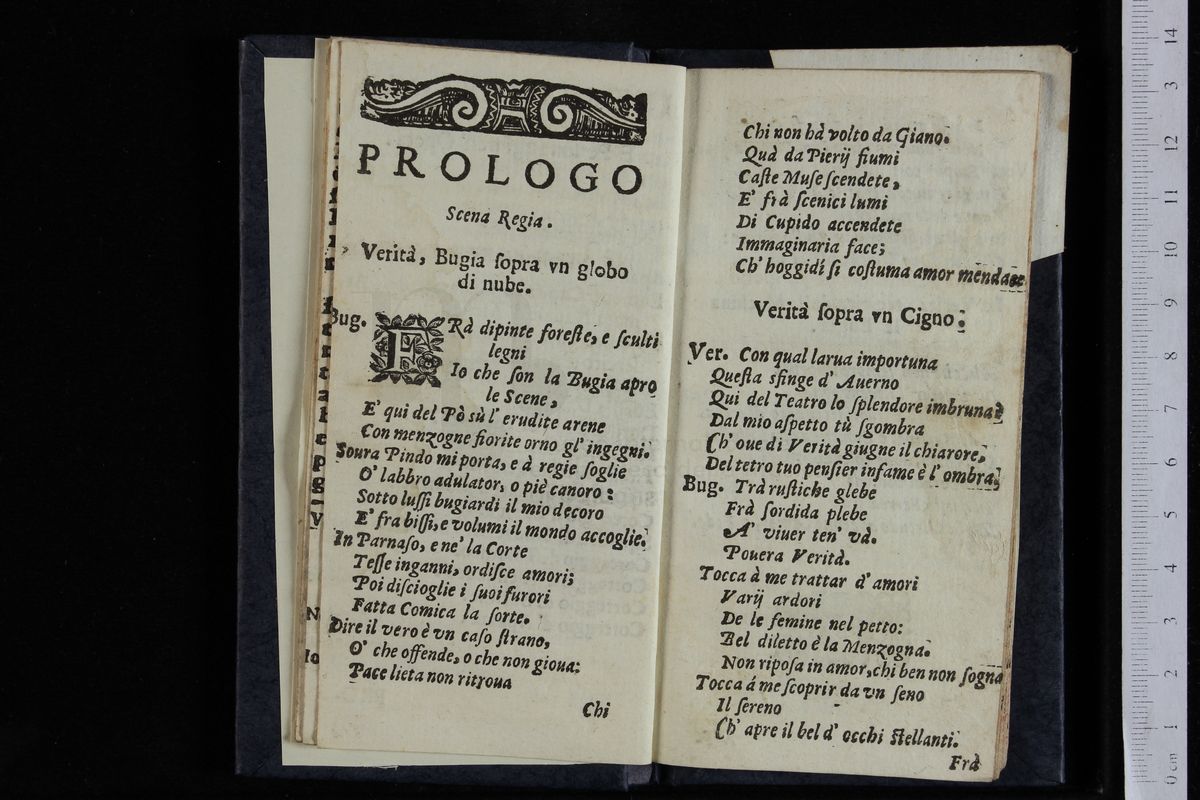 PROLOGO
Scena Regia.
Verità, Bugia ſopra vn globo
di nube.
Bug. ERà dipinte foreſte, e ſculti
legni
Io che ſon la Bugia apro
le Scene,
E' qui del Pò sù l' erudite arene
Con menzogne fiorite orno gl' ingegni.
Soura Pindo mi porta, e à regie ſoglie
O' labbro adulator, o piè canoro:
Sotto luſſi bugiardi il mio decoro
E' fra biſſi, e volumi il mondo accoglie.
In Parnaſo, e ne' la Corte
Teſſe inganni, ordiſce amori;
Poi diſcioglie i ſuoi furori
Fatta Comica la ſorte.
Dire il vero è vn caſo ſtrano,
O' che offende, o che non gioua:
Pace lieta non ritroua
Chi
Chi non hà volto da Giano.
Quà da Pierij fiumi
Caſte Muſe ſcendete,
E' frà ſcenici lumi
Di Cupido accendete
Immaginaria face;
Ch' hoggidí ſi coſtuma amor mendace
Verità ſopra vn Cigno.
Ver. Con qual larua importuna
Queſta sfinge d' Auerno
Qui del Teatro lo ſplendore imbruna?
Dal mio aſpetto tù ſgombra
Ch' oue di Verità giugne il chiarore,
Del tetro tuo penſier infame è l' ombra,
Bug. Trà ruſtiche glebe
Frà ſordida plebe
A' viuer ten' và.
Pouera Verità.
Tocca à me trattar d' amori
Varij ardori
De le femine nel petto:
Bel diletto è la Menzogna.
Non ripoſa in amor, chi ben non ſogna
Tocca á me ſcoprir da vn ſeno
Il ſereno
Ch' apre il bel d' occhi ſtellanti.
Frà
14
13
12
11
10
9
8
7
6
5
4
3
2
1
0 cm